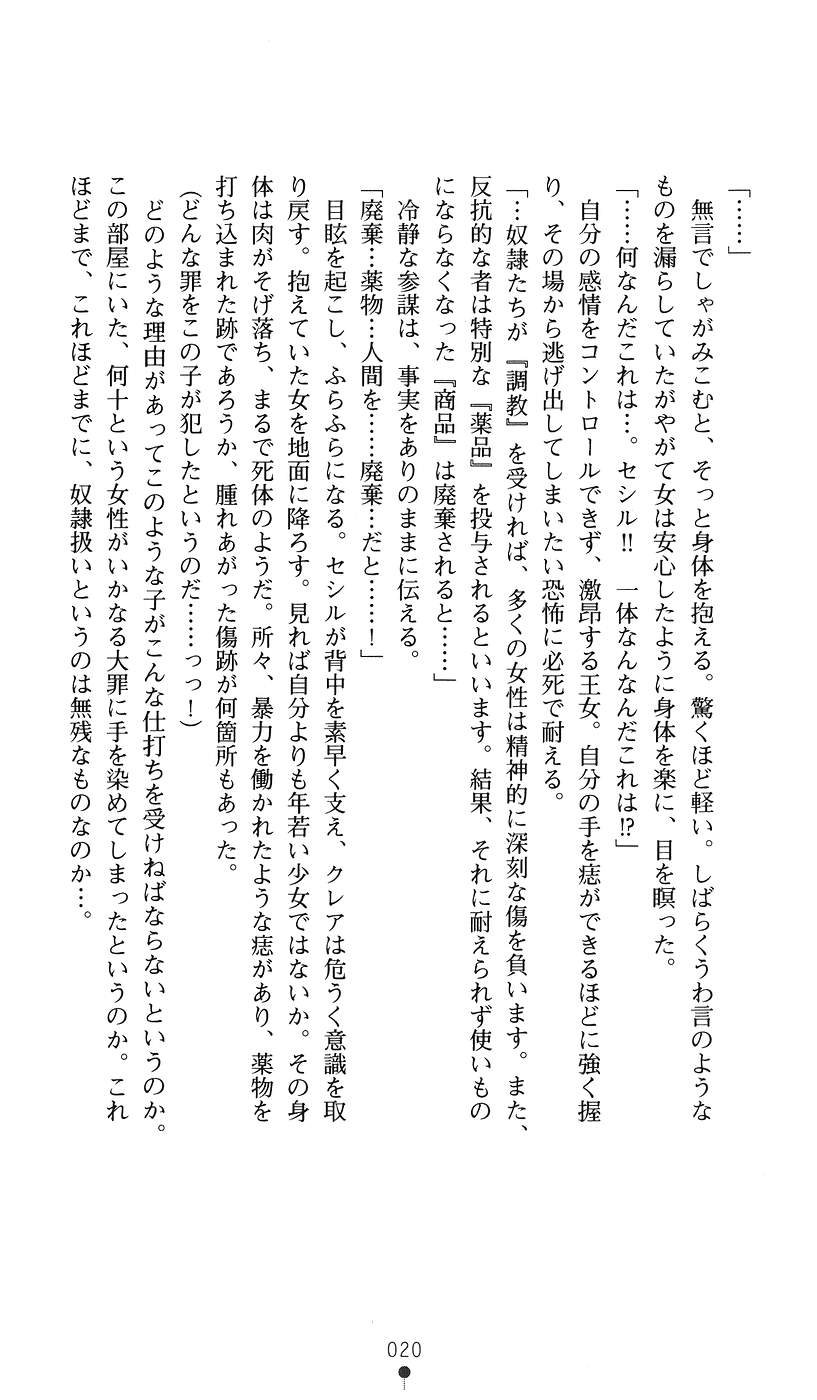 「……」
　無言でしゃがみこむと、そっと身体を抱える。驚くほど軽い。しばらくうわ言のような
ものを漏らしていたがやがて女は安心したように身体を楽に、目を瞑った。
「……何なんだこれは…。セシル‼　一体なんなんだこれは⁉」
　自分の感情をコントロールできず、激昂する王女。自分の手を痣ができるほどに強く握
り、その場から逃げ出してしまいたい恐怖に必死で耐える。
「…奴隷たちが『調教』を受ければ、多くの女性は精神的に深刻な傷を負います。また、
反抗的な者は特別な『薬品』を投与されるといいます。結果、それに耐えられず使いもの
にならなくなった『商品』は廃棄されると……」
　冷静な参謀は、事実をありのままに伝える。
「廃棄…薬物…人間を……廃棄…だと……！」
　目眩を起こし、ふらふらになる。セシルが背中を素早く支え、クレアは危うく意識を取
り戻す。抱えていた女を地面に降ろす。見れば自分よりも年若い少女ではないか。その身
体は肉がそげ落ち、まるで死体のようだ。所々、暴力を働かれたような痣があり、薬物を
打ち込まれた跡であろうか、腫れあがった傷跡が何箇所もあった。
（どんな罪をこの子が犯したというのだ……っっ！）
　どのような理由があってこのような子がこんな仕打ちを受けねばならないというのか。
この部屋にいた、何十という女性がいかなる大罪に手を染めてしまったというのか。これ
ほどまで、これほどまでに、奴隷扱いというのは無残なものなのか…。
020